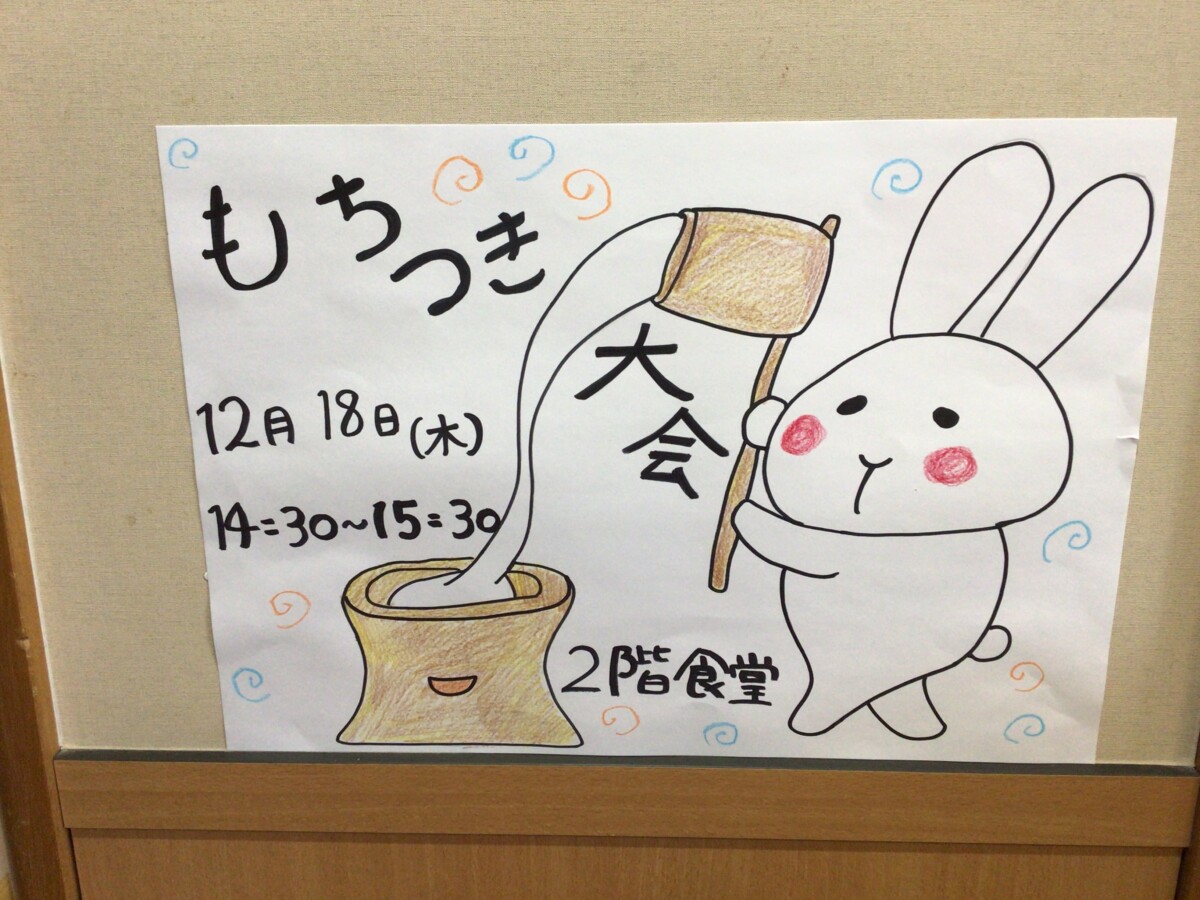 もちつき
大会
12月18日(木)
14:30~15:30
2階食堂